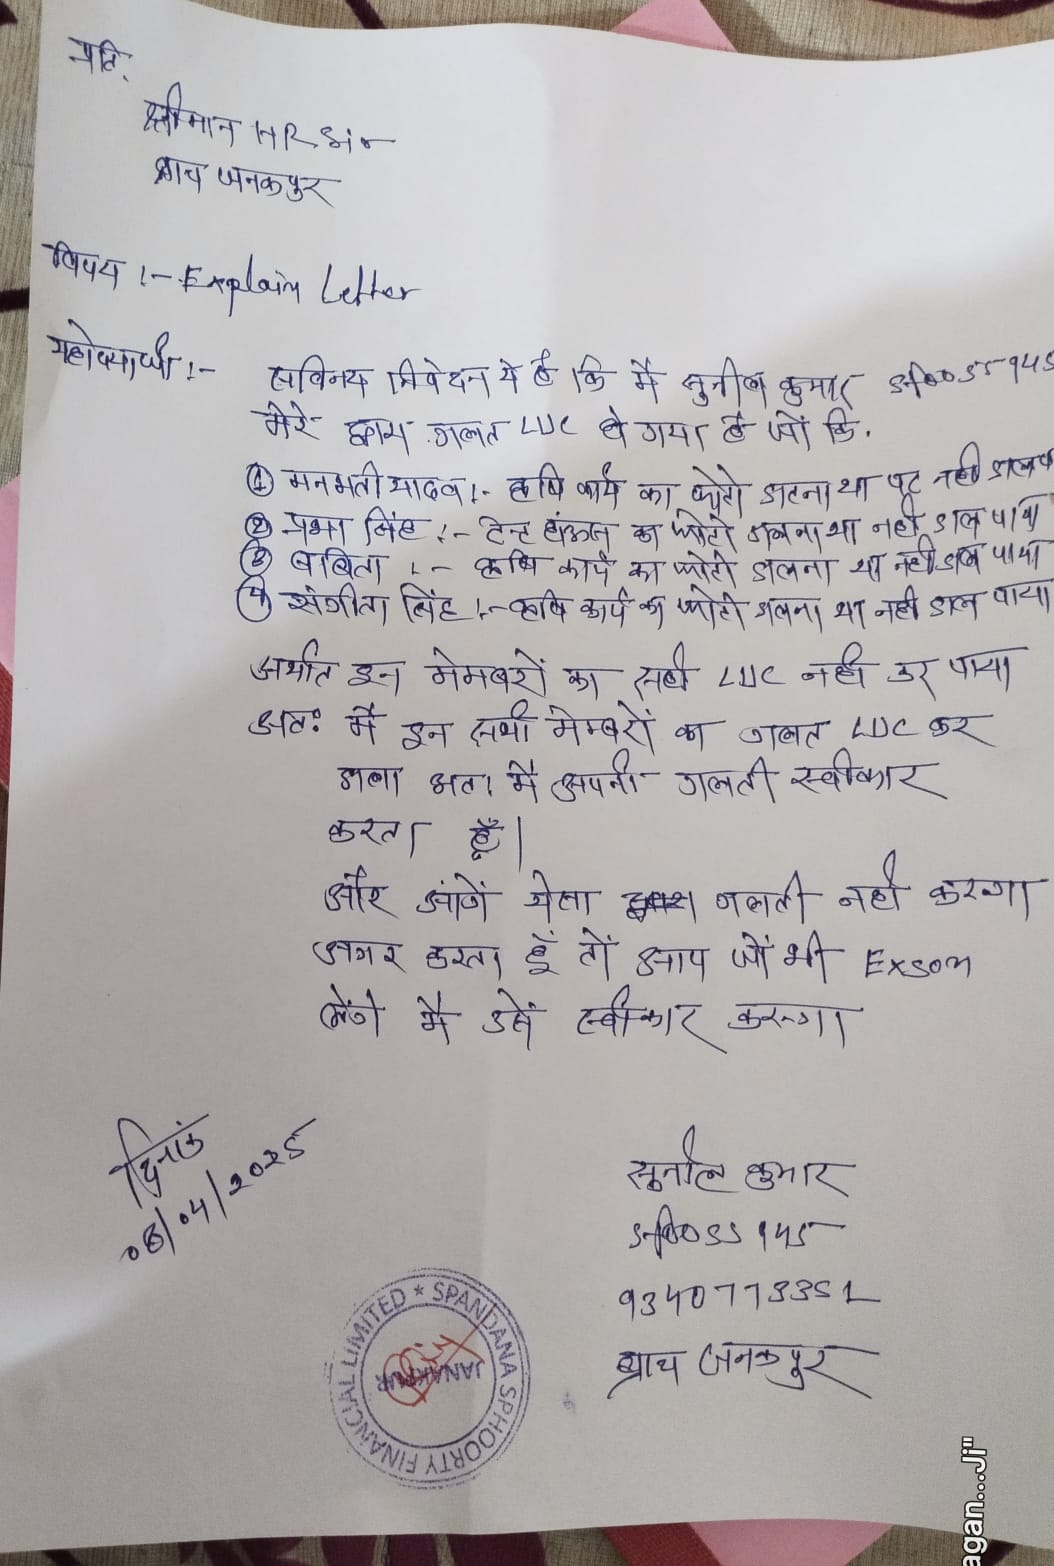 प्रति,
श्रीमान HR Sir
ब्रांच जनकपुर
विषय :- Explain Letter
महोदयाजी :-
सविनय निवेदन ये है कि मैं सुनील कुमार
मेरे द्वारा गलत LUC हो गया है जो कि.
① मनमती यादव :- कृषि कार्य का फोटो डालना था नही
② प्रभा सिंह :- टेन्ट का फोटो डालना था नही डाल पाया
③ बबिता :- कृषि कार्य का फोटो डालना था नही डाल पाया
④ संगीता सिंह :- कृषि कार्य का फोटो डालना था नही डाल पाया
अर्थात इन मेमबरों का सही LUC नही कर पाया
अतः मैं इन सभी मेम्बरों का गलत LUC कर
डाला अतः मैं अपनी गलती स्वीकार
करता हूँ|
और आंगें येसा गलती नही करूगा
अगर करता हूँ तों आप जों भी Exsom
लेंगे मैं उसें स्वीकार करूगा
दिनांक
08/04/2025
सुनील कुमार
9340773351
ब्राच जनकपुर
SPANDANA SPHOORTY FINANCIAL LIMITED *
JANAKPUR
agan...Ji"